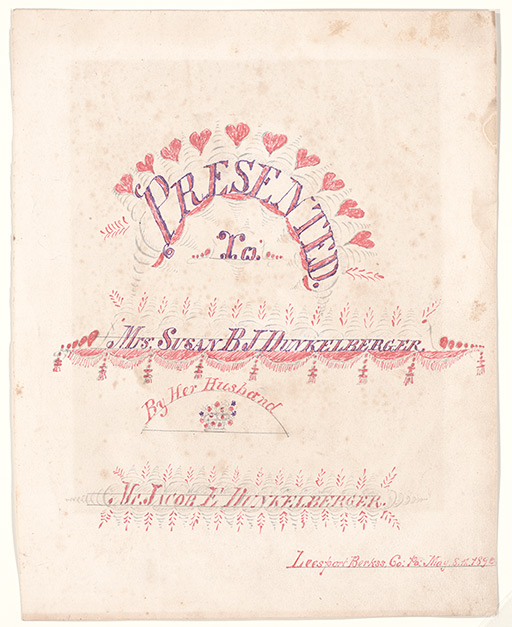 PRESENTED.
To.
Mrs. SUSAN B J DUNKELBERGER.
By Her Husband
Mr JACOB E DUNKELBERGER.
Leesport Berkss. Co: Pa: May. 8.